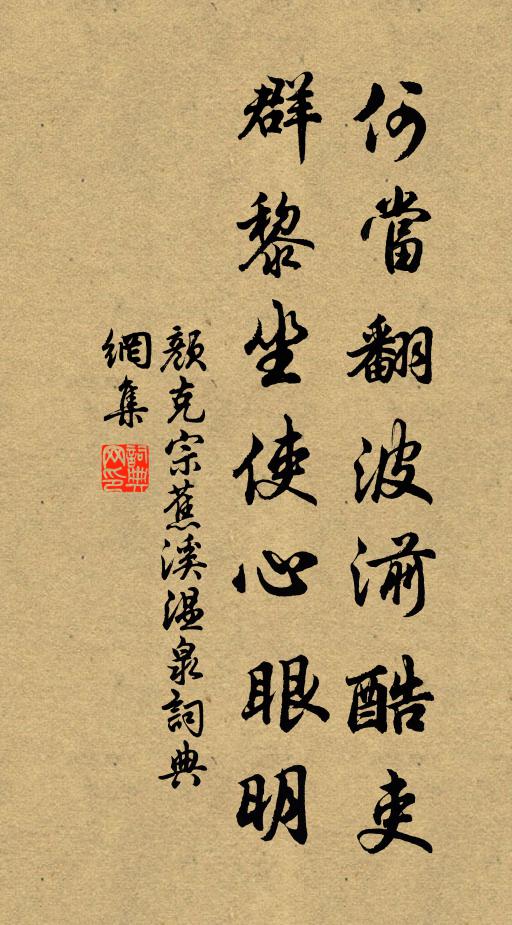 何當翻波湔酷吏
群黎坐使心眼明
顏克宗蕉溪溫泉詞典
網集
詞典網印